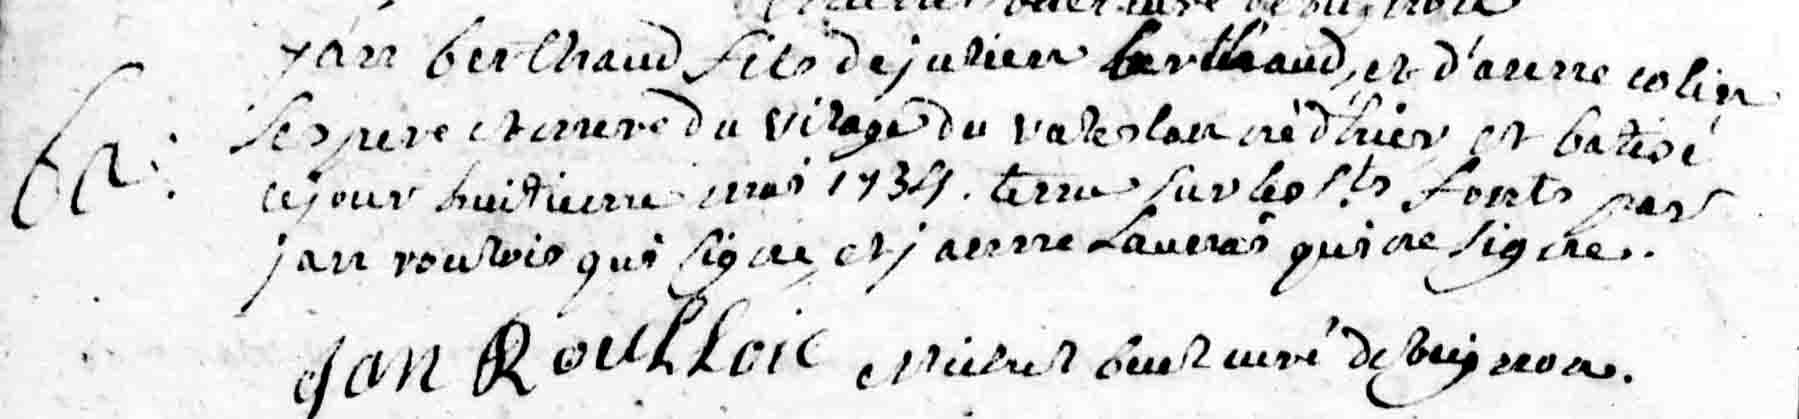 curé de Buignon
jan berthaud fils de julien berthaud, et d'anne colin
ses pere et mere du vilage du valeslan né d'hier et batisé
ba:
ce jour huitieme mai 1734. tenu sur les Sts fonts par
jan roulois qui signe, et janne Launai qui ne signe.
Jan Roulloic Michel buet curé de buignon.